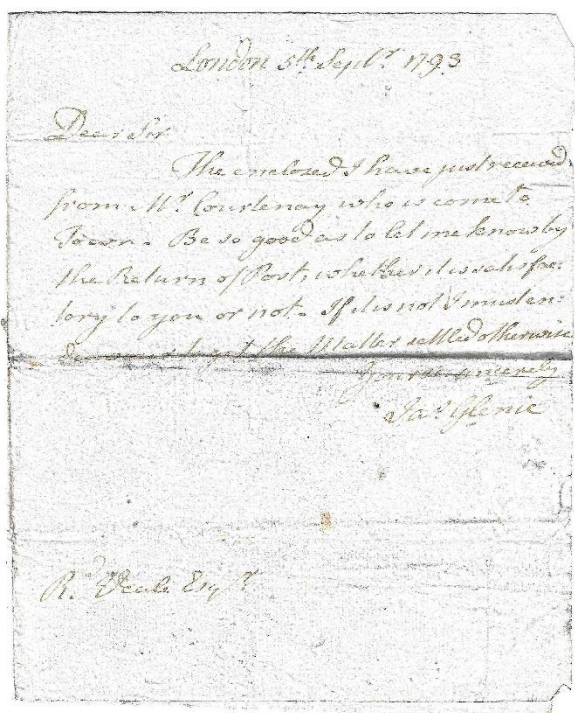 London 5th Septr 1793
Dear Sir
The enclosed I have just received
from Mr Courtenay who is come to
Town. Be so good as to let me know by
the Return of Post, whether it is satisfac-
tory to you or not. If it is not I must en-
deavour to get the Matter settled otherwise
Yours sincerely
Jas Glenie
Rd Esqr